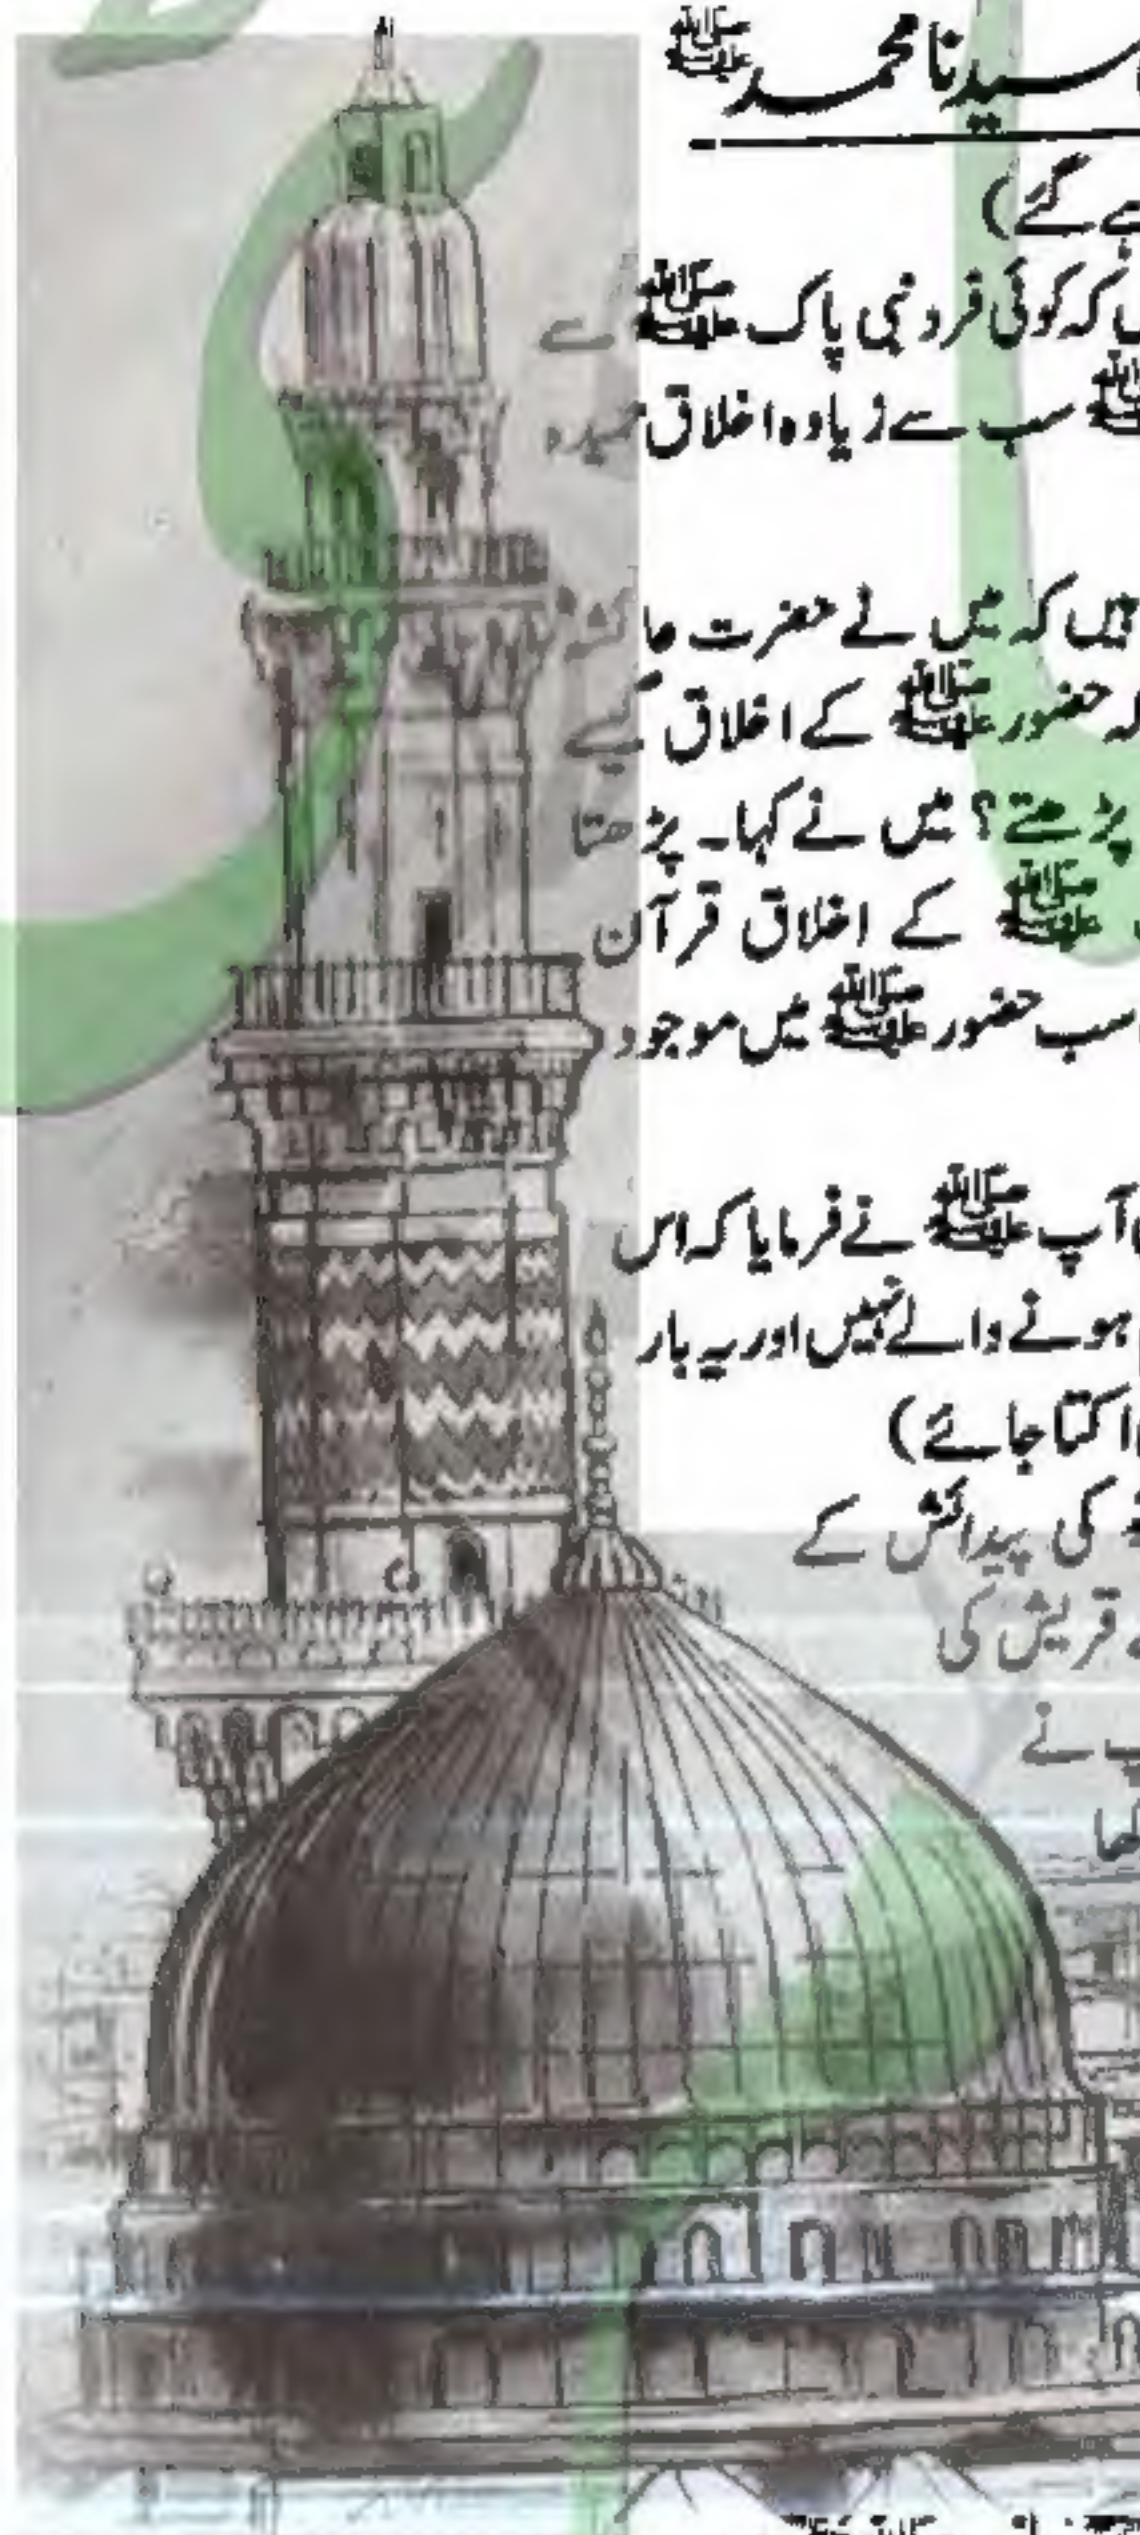 سیدنا محمد ﷺ
گئے)
کہ کوئی فرد نبی پاک ﷺ سے
ﷺ سب سے زیادہ اخلاق حمیدہ
ہیں کہ میں نے حضرت عائشہ
حضور ﷺ کے اخلاق کیسے
پڑھتے؟ میں نے کہا۔ پڑھتا
ﷺ کے اخلاق قرآن
سب حضور ﷺ میں موجود
آپ ﷺ نے فرمایا کہ اس
ہونے والے نہیں اور یہ بار
اکتا جائے)
کی پیدائش کے
قریش کی
نے